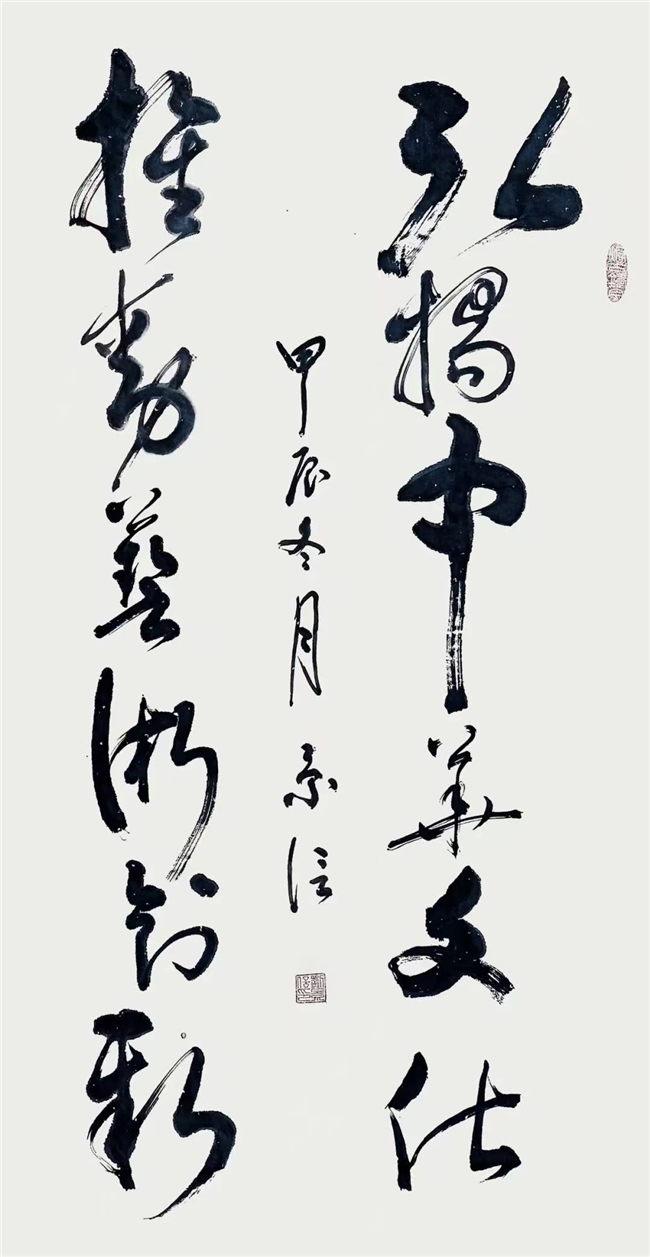 弘揚中華文化
推動藝術創新
甲辰冬月景信